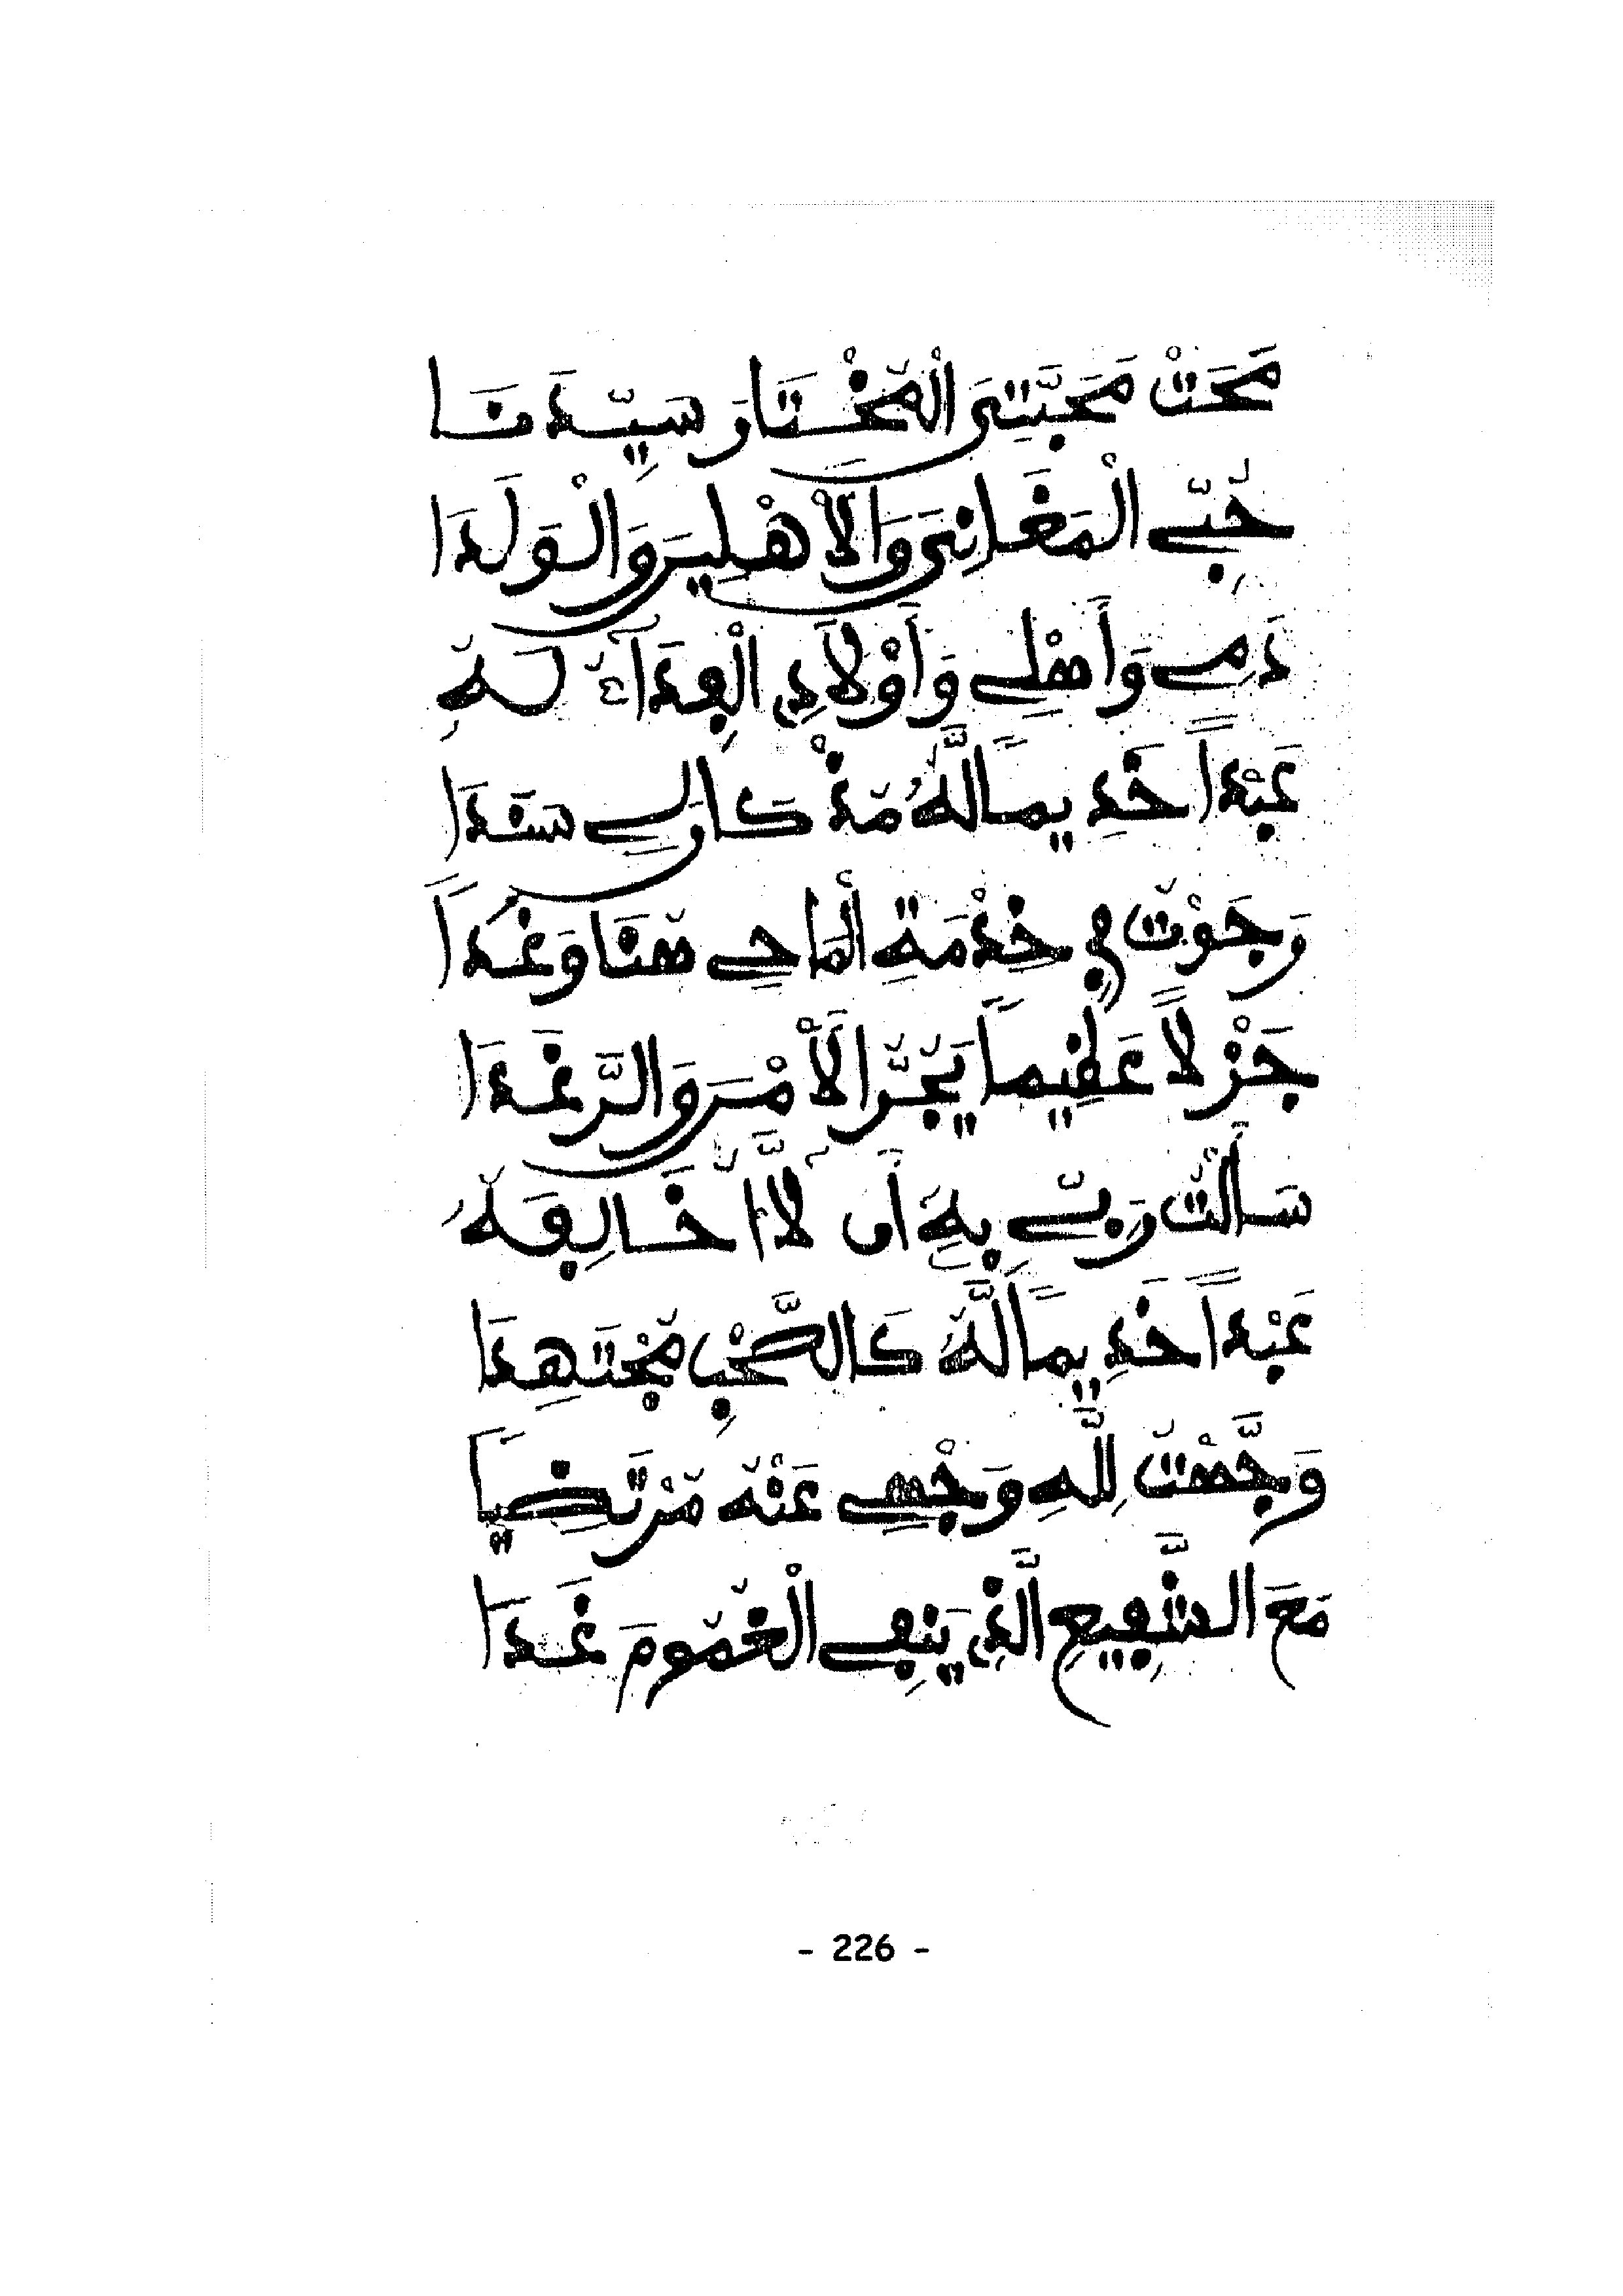 مَحَتْ مَحَبَّتِيَ الْمُخْتَارَ سَيِّدَنَا
حُبِّي الْمَغَانِيَ وَالْأَهْلِينَ وَالْوَلَدَا
دَمِي وَأَهْلِي وَأَوْلَادِي الْفِدَاءُ لَهُ
عَبْدًا خَدِيمًا لَهُ مُذْ كَانَ لِي سَنَدَا
وَجُوْتُ فِي خِدْمَةِ الْمَاحِي هُنَا وَغَدًا
جَزْلًا عَظِيمًا يَجُرُّ الْأَمْنَ وَالرَّغَدَا
سَأَلْتُ رَبِّي بِهِ أَن لَّا أُخَالِفَهُ
عَبْدًا خَدِيمًا لَهُ كَالصَّحْبِ مُجْتَهِدَا
وَجَّهْتُ لِلَّهِ وَجْهِي عَنْهُ مُرْتَضِيًا
مَعَ الشَّفِيعِ الَّذِي يَنْفِي الْغُمُومَ غَدَا
- 226 -